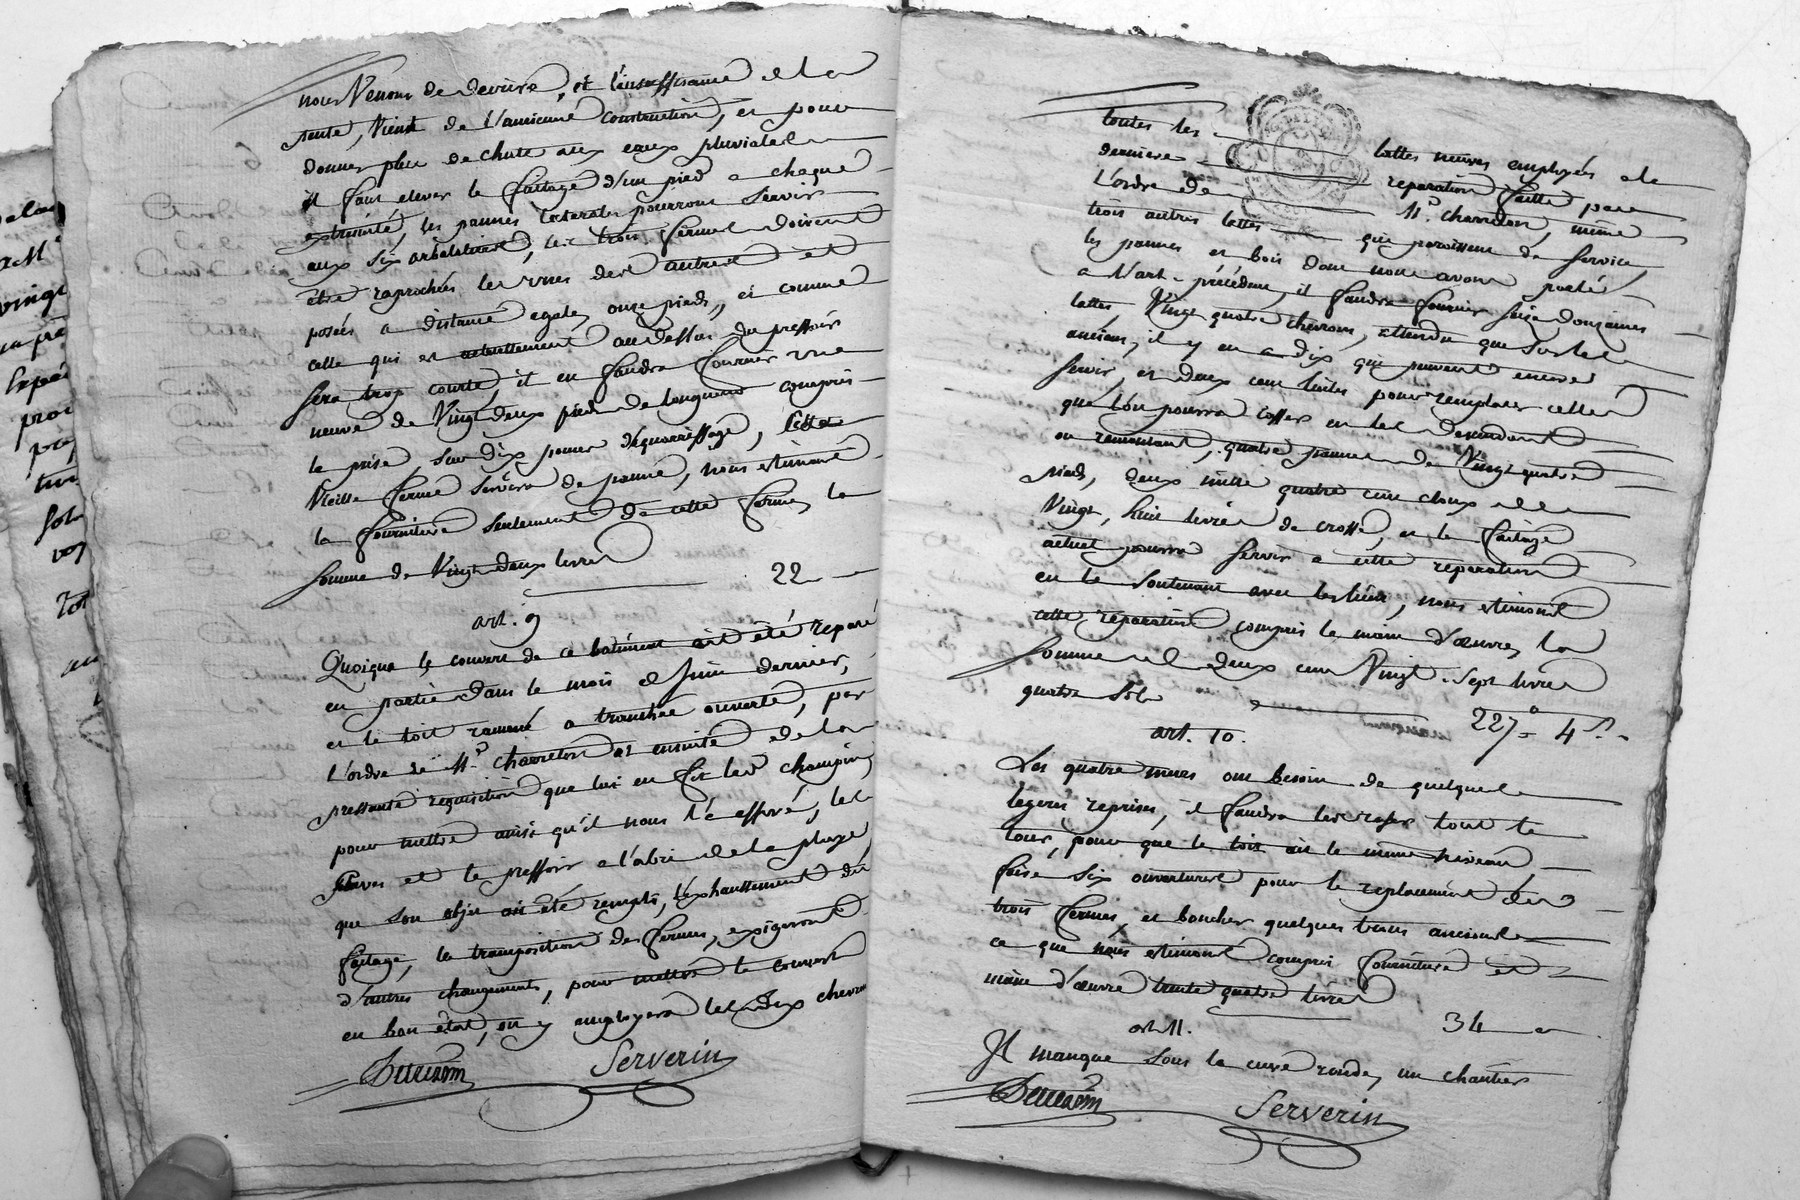 nous venons de decrire, et l'insuffisance de la
pente, vient de l'ancienne construction, et pour
donner plus de chute aux eaux pluviales
il faut elever le faitage d'un pied a chaque
extrémité, les pannes laterales pourront servir
aux six arbaletriers, les trois fermes doivent
être raprochées les unes des autres et
posées a distance egale, onze pieds, et comme
celle qui est actuellement au dessus du pressoir
sera trop courte, il en faudra fournir une
neuve de vingt deux pieds de longueur compris
la prise, sur dix pouces d'equarrissage, cette
vieille ferme servira de panne, nous estimons
la fourniture seulement de cette ferme, la
somme de vingt deux livres
22
art. 9
Quoique le couvert de ce batiment ait été reparé
en partie dans le mois de juin dernier,
et le toit ramené a tranchée ouverte, par
l'ordre de Mr. Charreton et ensuite de la
pressante requisition que lui en fit le Sr Champin,
pour mettre ainsi qu'il nous l'a assuré, les
cuves et le pressoir a l'abri de la pluye,
que son objet ait été rempli, l'exhaussement du
faitage, la transposition des fermes, exigeront
d'autres changements, pour mettre le couvert
en bon état, on y employera les dix chevrons
Serverin
toutes les lattes neuves employées a la
derniere reparation faitte par
l'ordre de Mr. Charreton, même
trois autres lattes que paroissent de service,
les pannes et bois dont nous avons parlé
a l'art. précédent, il faudra fournir seize douzaines
lattes, vingt quatre chevrons, attendu que sur les
anciens, il y en a dix qui peuvent encore
servir, et deux cent tuiles pour remplacer celles
que l'on pourra casser en les descendant
ou remontant, quatre pannes de vingt quatre
pieds, deux mille quatre cent cloux de
vingt, huit livres de crosse, et le faitage
actuel pourra servir a cette reparation
en le soutenant avec les liens, nous estimons
cette reparation compris la main d'œuvre, la
somme de deux cent vingt sept livres
quatre sols
227 = 4 s.
art. 10.
Les quatre murs ont besoin de quelques
legeres reprises, il faudra les raser tout le
tour, pour que le toit ait le même niveau
faire six ouvertures pour le replacement des
trois fermes, et boucher quelques trous anciens
ce que nous estimons compris fourniture et
main d'œuvre trente quatre livres
34
art. 11.
Il manque sous la cuve ronde, un chantier
Serverin